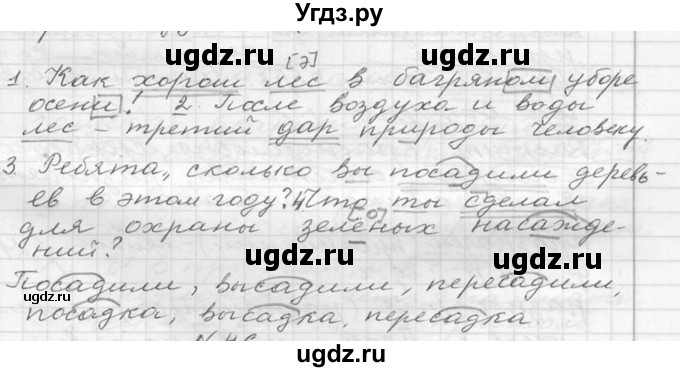 Угдз.ру
[э]
1. Как хорош лес в багряном уборе
осени! 2. После воздуха и воды
лес – третий дар природы человеку.
3. Ребята, сколько вы посадили деревь-
ев в этом году? 4. Что ты сделал
[о]
для охраны зелёных насажде-
ний?
Посадили, высадили, пересадили,
посадка, высадка, пересадка
ugdz.ru
ugdz.ru
ugdz.ru
ugdz.ru
ugdz.ru
ugdz.ru
ugdz.ru
ugdz.ru
ugdz.ru
ugdz.ru